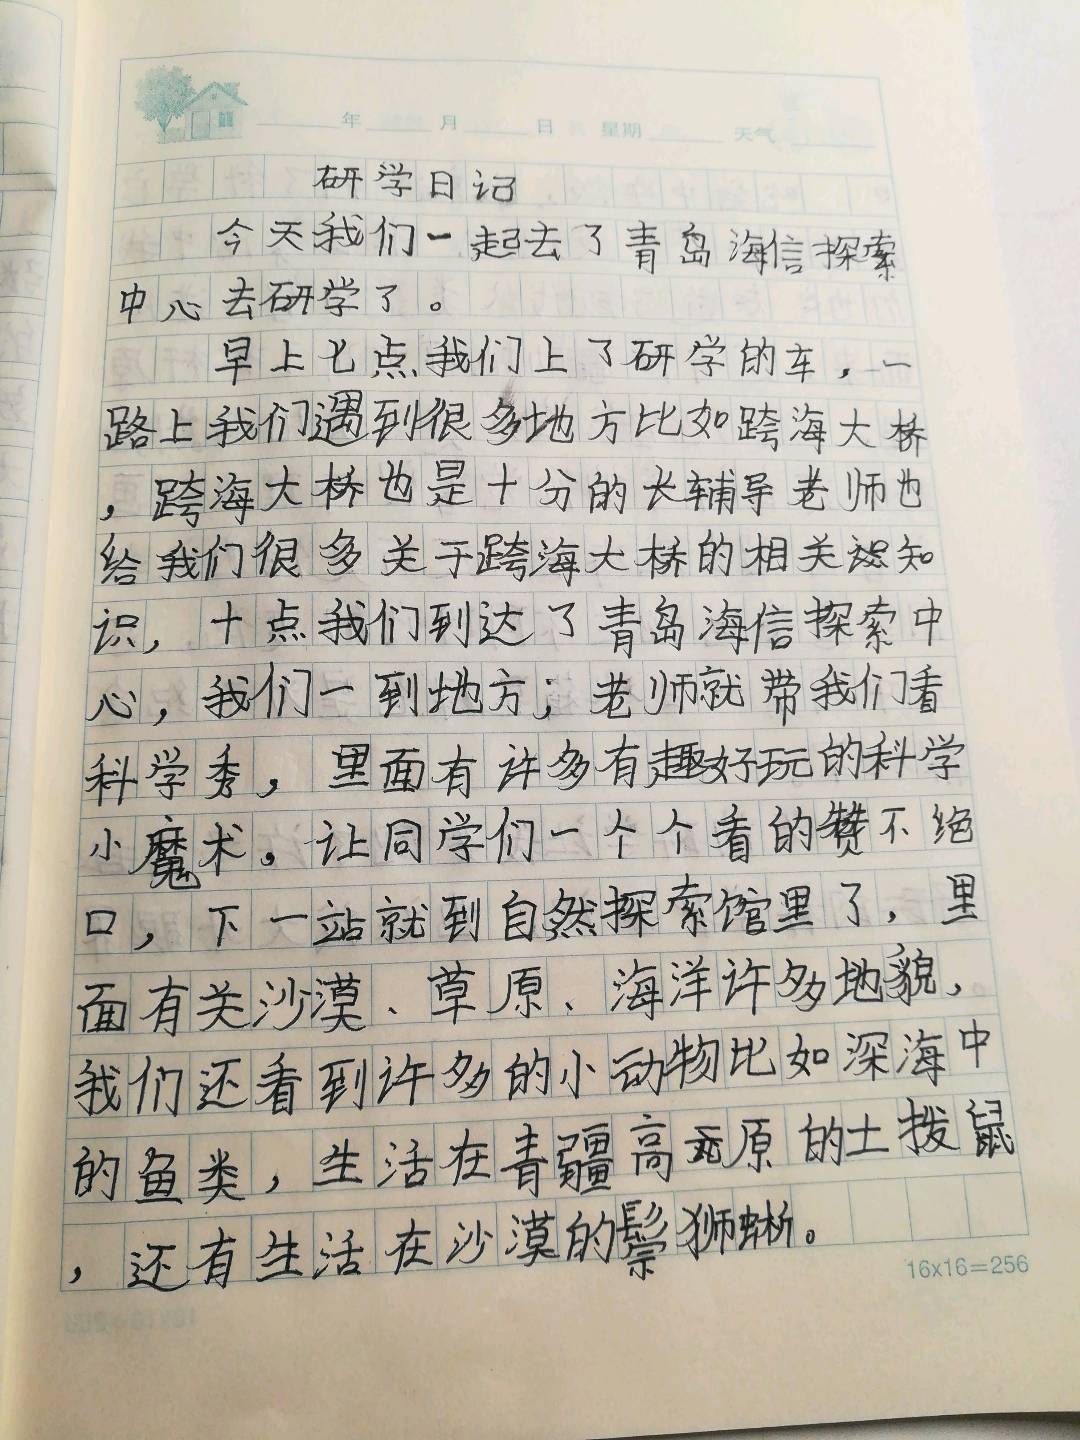 年 月 日 星期 天气
研学日记
今天我们一起去了青岛海信探索
中心去研学了。
早上七点我们上了研学的车，一
路上我们遇到很多地方比如跨海大桥
，跨海大桥也是十分的长辅导老师也
给我们很多关于跨海大桥的相关知
识，十点我们到达了青岛海信探索中
心，我们一到地方；老师就带我们看
科学秀，里面有许多有趣好玩的科学
小魔术。让同学们一个个看的赞不绝
口，下一站就到自然探索馆里了，里
面有关沙漠、草原、海洋许多地貌，
我们还看到许多的小动物比如深海中
的鱼类，生活在青疆高原的土拨鼠
，还有生活在沙漠的鬃狮蜥。
16x16=256